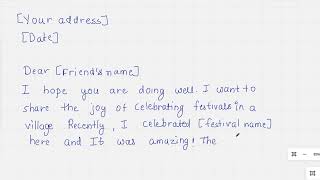 [Your address]
[Date]
Dear [Friend's name]
I hope you are doing well. I want to
share the joy of celebrating festivals in a
village Recently, I celebrated [festival name]
here and It was amazing! The